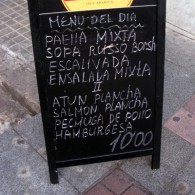 MENU DEL DIA
PAELLA MIXTA
SOPA RUSSO BORSH
ESCALIVADA
ENSALADA MIXTA
II
ATUN PLANCHA
SALMON PLANCHA
PECHUGA DE POLLO
HAMBURGESA
1000